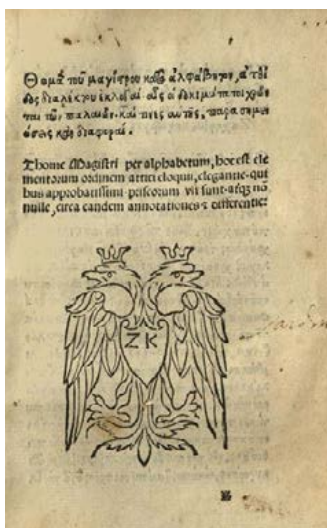 Θομᾶ τοῦ μαγίστρου κατὰ ἀλφάβητον, ἀτθί
δος διαλέκτου ἐκλογαὶ αἷς οἱ δοκιμώτατοι χρῶν
ται τῶν παλαιῶν· καὶ τινὲς αὐτῆς, παρασημει
ώσεις καὶ διαφοραί.
Thome Magistri per alphabetum, hoc est ele
mentorum ordinem attici eloquii, elegantie, qui
bus approbatissimi priscorum vsi sunt, atqz nō
nulle, circa eandem annotationes & differentie:
Ζ Κ